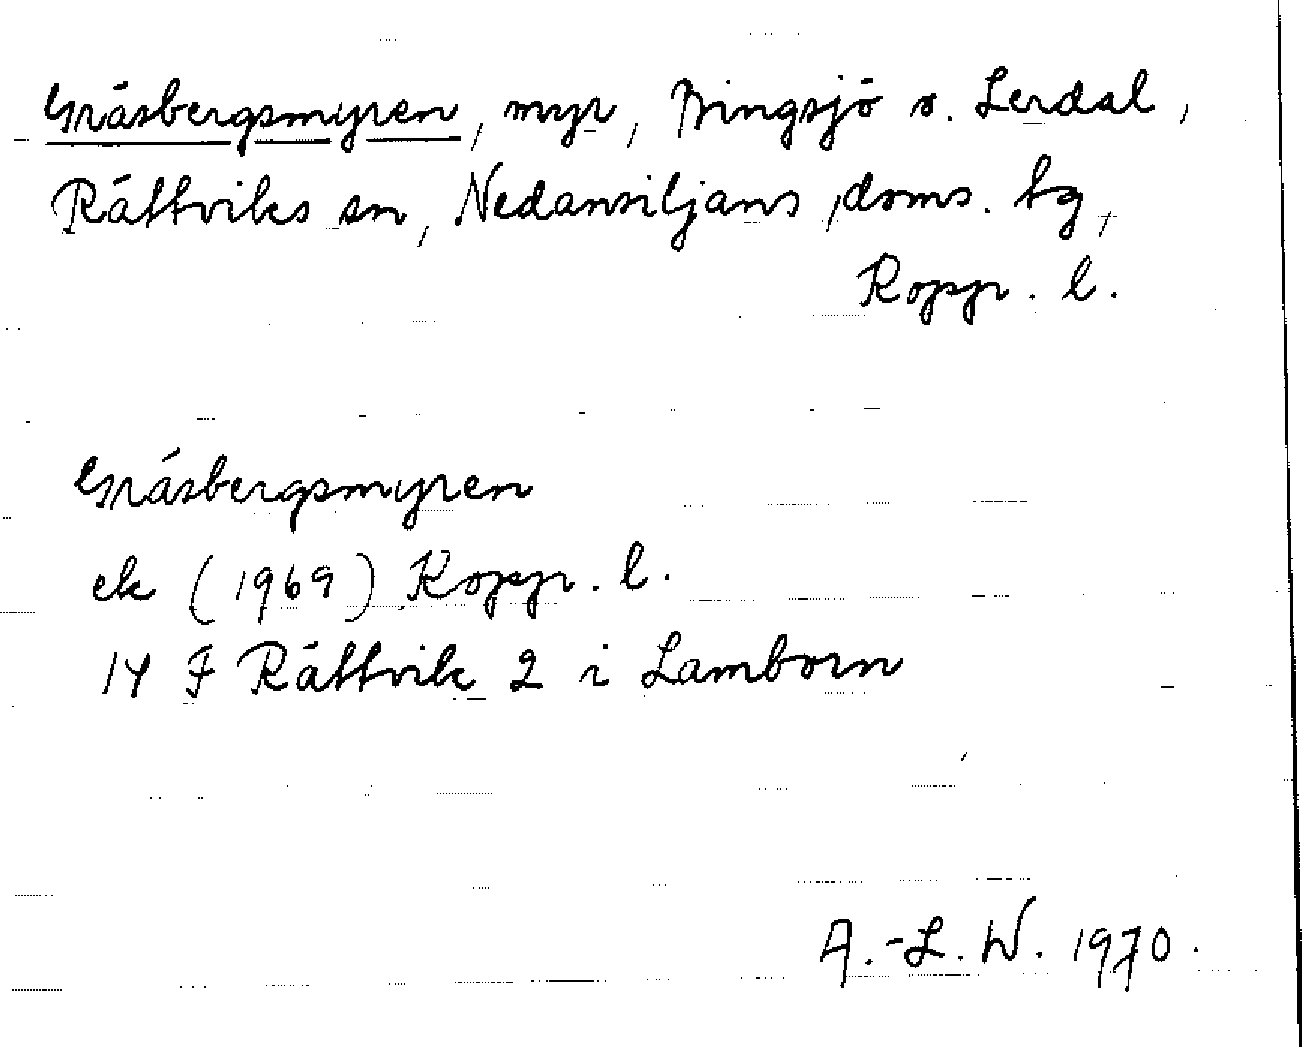 Gräsbergsmyren, myr, Bingsjö o. Lerdal,
Rättviks sn, Nedansiljans doms. tg,
Kopp. l.
Gräsbergsmyren
ek (1969) Kopp. l.
14 F Rättvik 2 i Lamborn
A.-L. W. 1970.